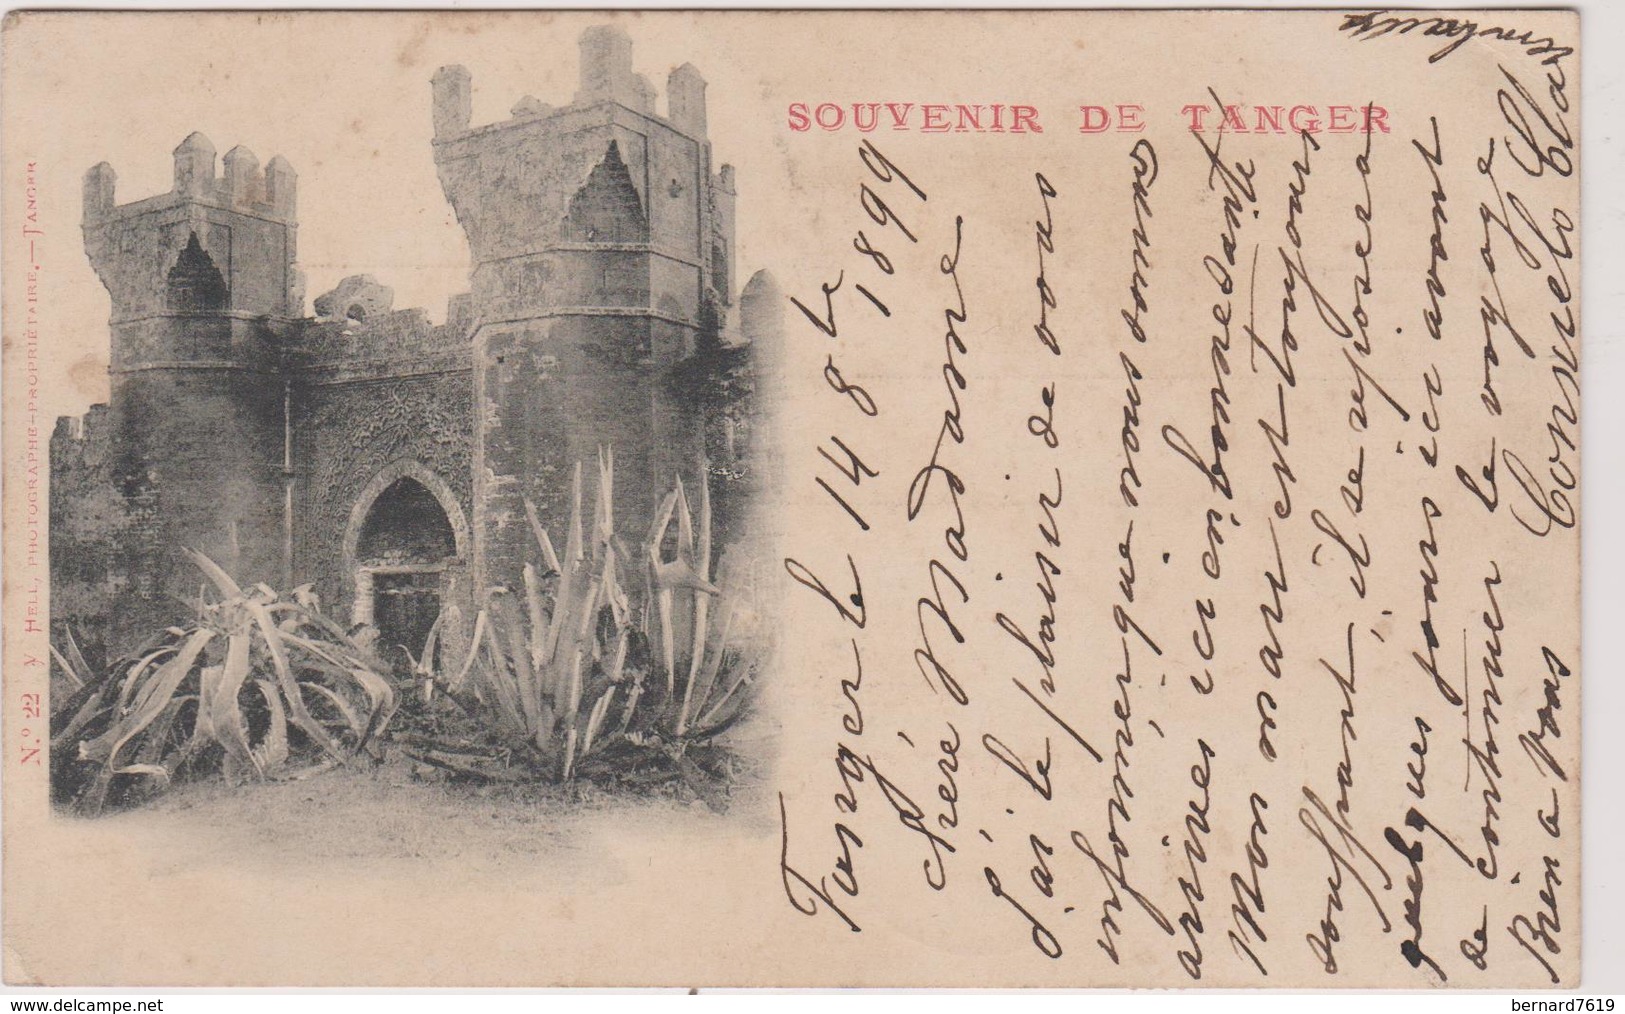 SOUVENIR DE TANGER
Nº. 22 HELL, PHOTOGRAPHE-PROPRIÈTAIRE.—TANGER
Tanger le 14 8be 1899
chère Madame
J'ai le plaisir de vous
informér que nous sommes
arrivés ici in bonne santé
Mon mari est toujours
souffrant, il se reposera
quelques jours ici avant
de continuer le voyage
Bien a vous Consuelo
delcampe.net
bernard7619